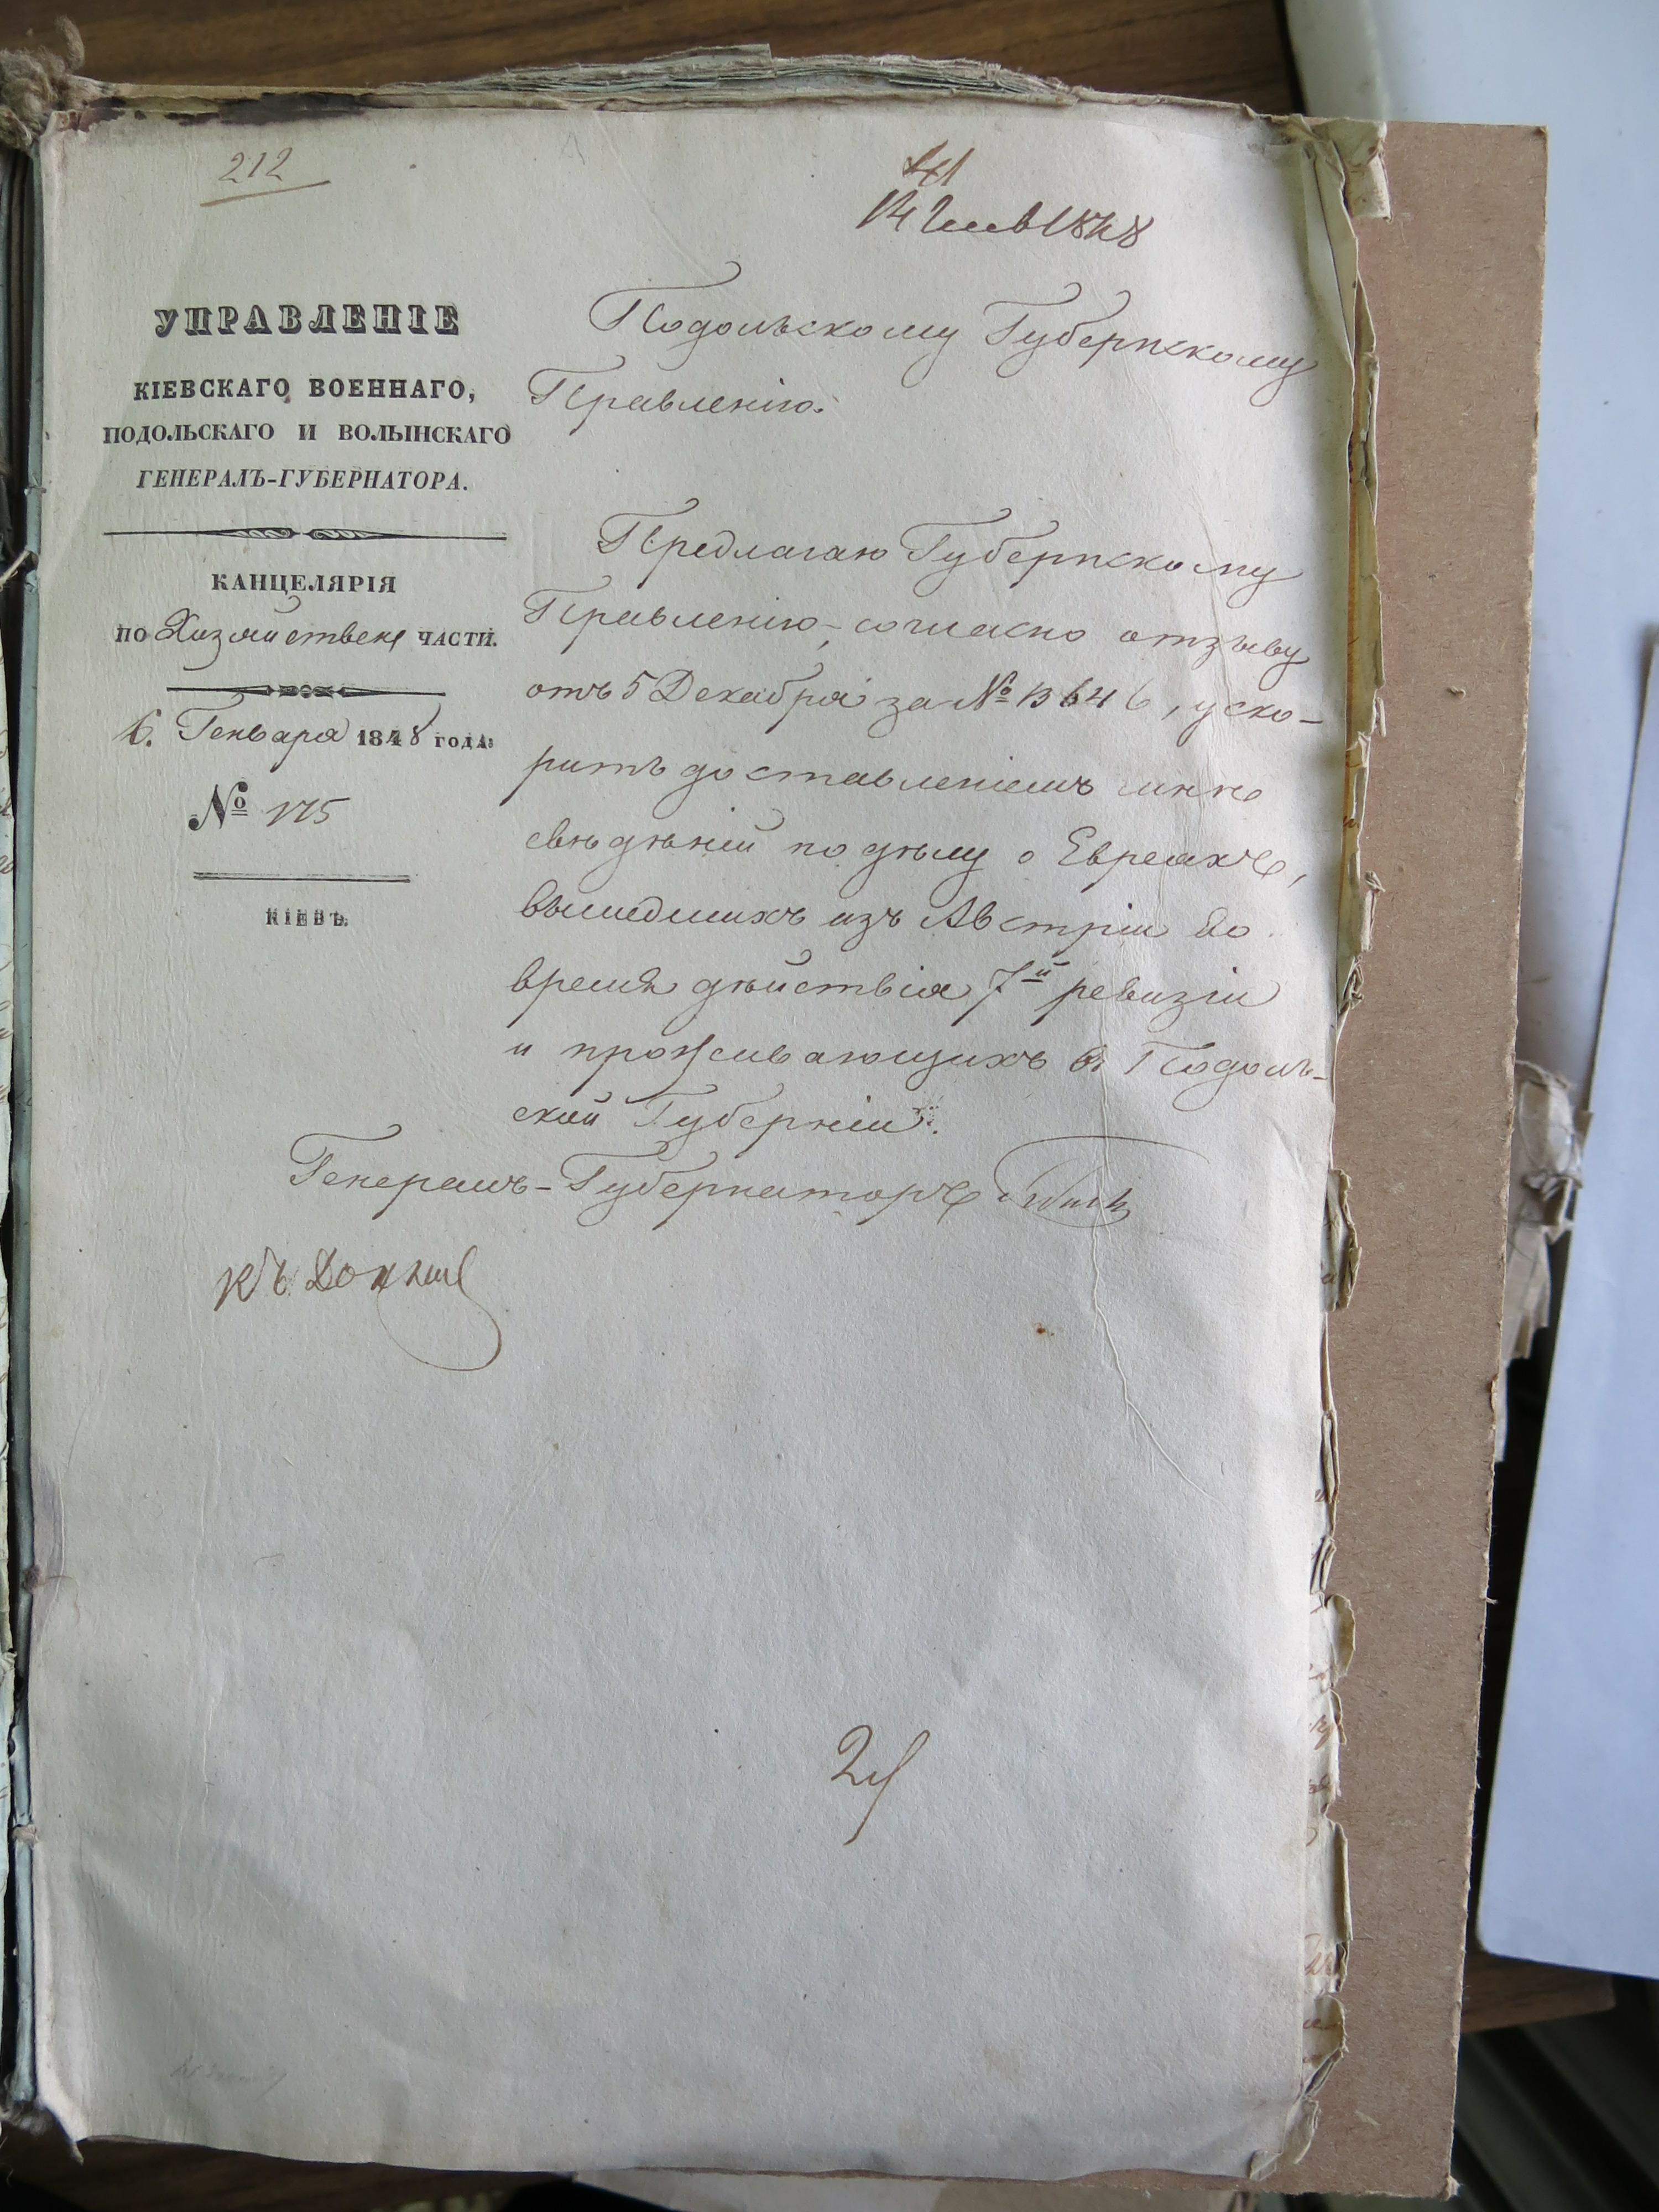 212
14 Генв 1848
УПРАВЛЕНІЕ
КІЕВСКАГО ВОЕННАГО,
ПОДОЛЬСКАГО И ВОЛЫНСКАГО
ГЕНЕРАЛЪ-ГУБЕРНАТОРА.
КАНЦЕЛЯРІЯ
ПО Хозяйствен ЧАСТИ.
6. Генваря 1848 ГОДА.
№ 175
КІЕВЪ.
Подольскому Губернскому
Правленію.
Предлагаю Губернскому
Правленію, согласно отзыву
отъ 5 Декабря за № 13646, уско-
рить доставленіемъ мнѣ
свѣдѣній по дѣлу о Евреяхъ,
вышедшихъ изъ Австріи во
время дѣйствія 7й ревизіи
и проживающихъ въ Подоль-
ской Губерніи.
Генералъ-Губернаторъ
къ